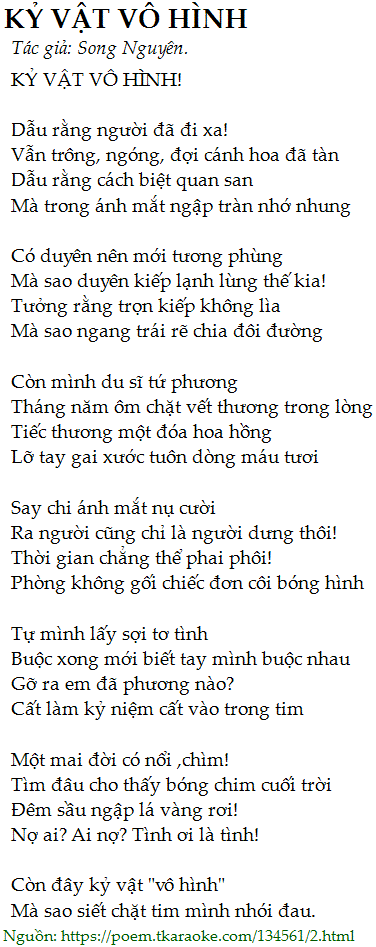 KỶ VẬT VÔ HÌNH
Tác giả: Song Nguyên.
KỶ VẬT VÔ HÌNH!

Dẫu rằng người đã đi xa!
Vẫn trông, ngóng, đợi cánh hoa đã tàn
Dẫu rằng cách biệt quan san
Mà trong ánh mắt ngập tràn nhớ nhung

Có duyên nên mới tương phùng
Mà sao duyên kiếp lạnh lùng thế kia!
Tưởng rằng trọn kiếp không lìa
Mà sao ngang trái rẽ chia đôi đường

Còn mình du sĩ tứ phương
Tháng năm ôm chặt vết thương trong lòng
Tiếc thương một đóa hoa hồng
Lỡ tay gai xước tuôn dòng máu tươi

Say chi ánh mắt nụ cười
Ra người cũng chỉ là người dưng thôi!
Thời gian chẳng thể phai phôi!
Phòng không gối chiếc đơn côi bóng hình

Tự mình lấy sợi tơ tình
Buộc xong mới biết tay mình buộc nhau
Gỡ ra em đã phương nào?
Cất làm kỷ niệm cất vào trong tim

Một mai đời có nổi ,chìm!
Tìm đâu cho thấy bóng chim cuối trời
Đêm sầu ngập lá vàng rơi!
Nợ ai? Ai nợ? Tình ơi là tình!

Còn đây kỷ vật "vô hình"
Mà sao siết chặt tim mình nhói đau.
Nguồn: https://poem.tkaraoke.com/134561/2.html